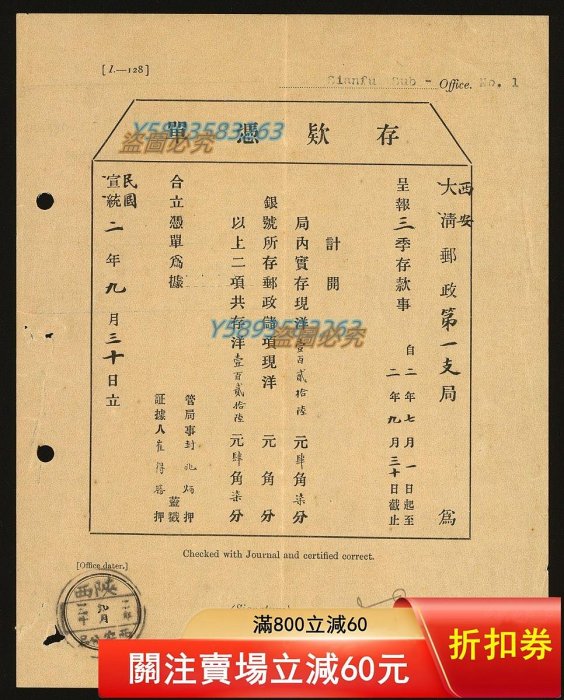 [J.—128]
Sianfu Sub - Office. No. 1
存欵憑單
西安
大清郵政第一支局爲
呈報三季存款事自二年七月一日起至二年九月三十日截止
計開
局内實存現洋壹百貳拾陸元肆角柒分
銀號所存郵政儲項現洋元角分
以上二項共存洋壹百貳拾陸元肆角柒分
合立憑單爲據
管局事封兆炳押
蓋戳
証據人崔得勝押
民國
宣統二年九月三十日立
Checked with Journal and certified correct.
[Office dater.]
陝西
九月
Y5893583263
盜圖必究
Y5893583263
盜圖必究
滿800立減60
關注賣場立減60元
折扣券